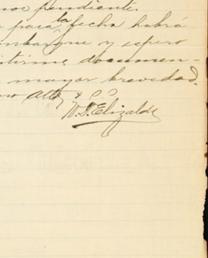 no pendiente.
para la fecha habrá
embarque y espero
documen-
mayor brevedad.
Atto y
Elizalde